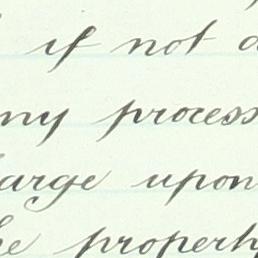 if not a
ny process
arge upon
he property